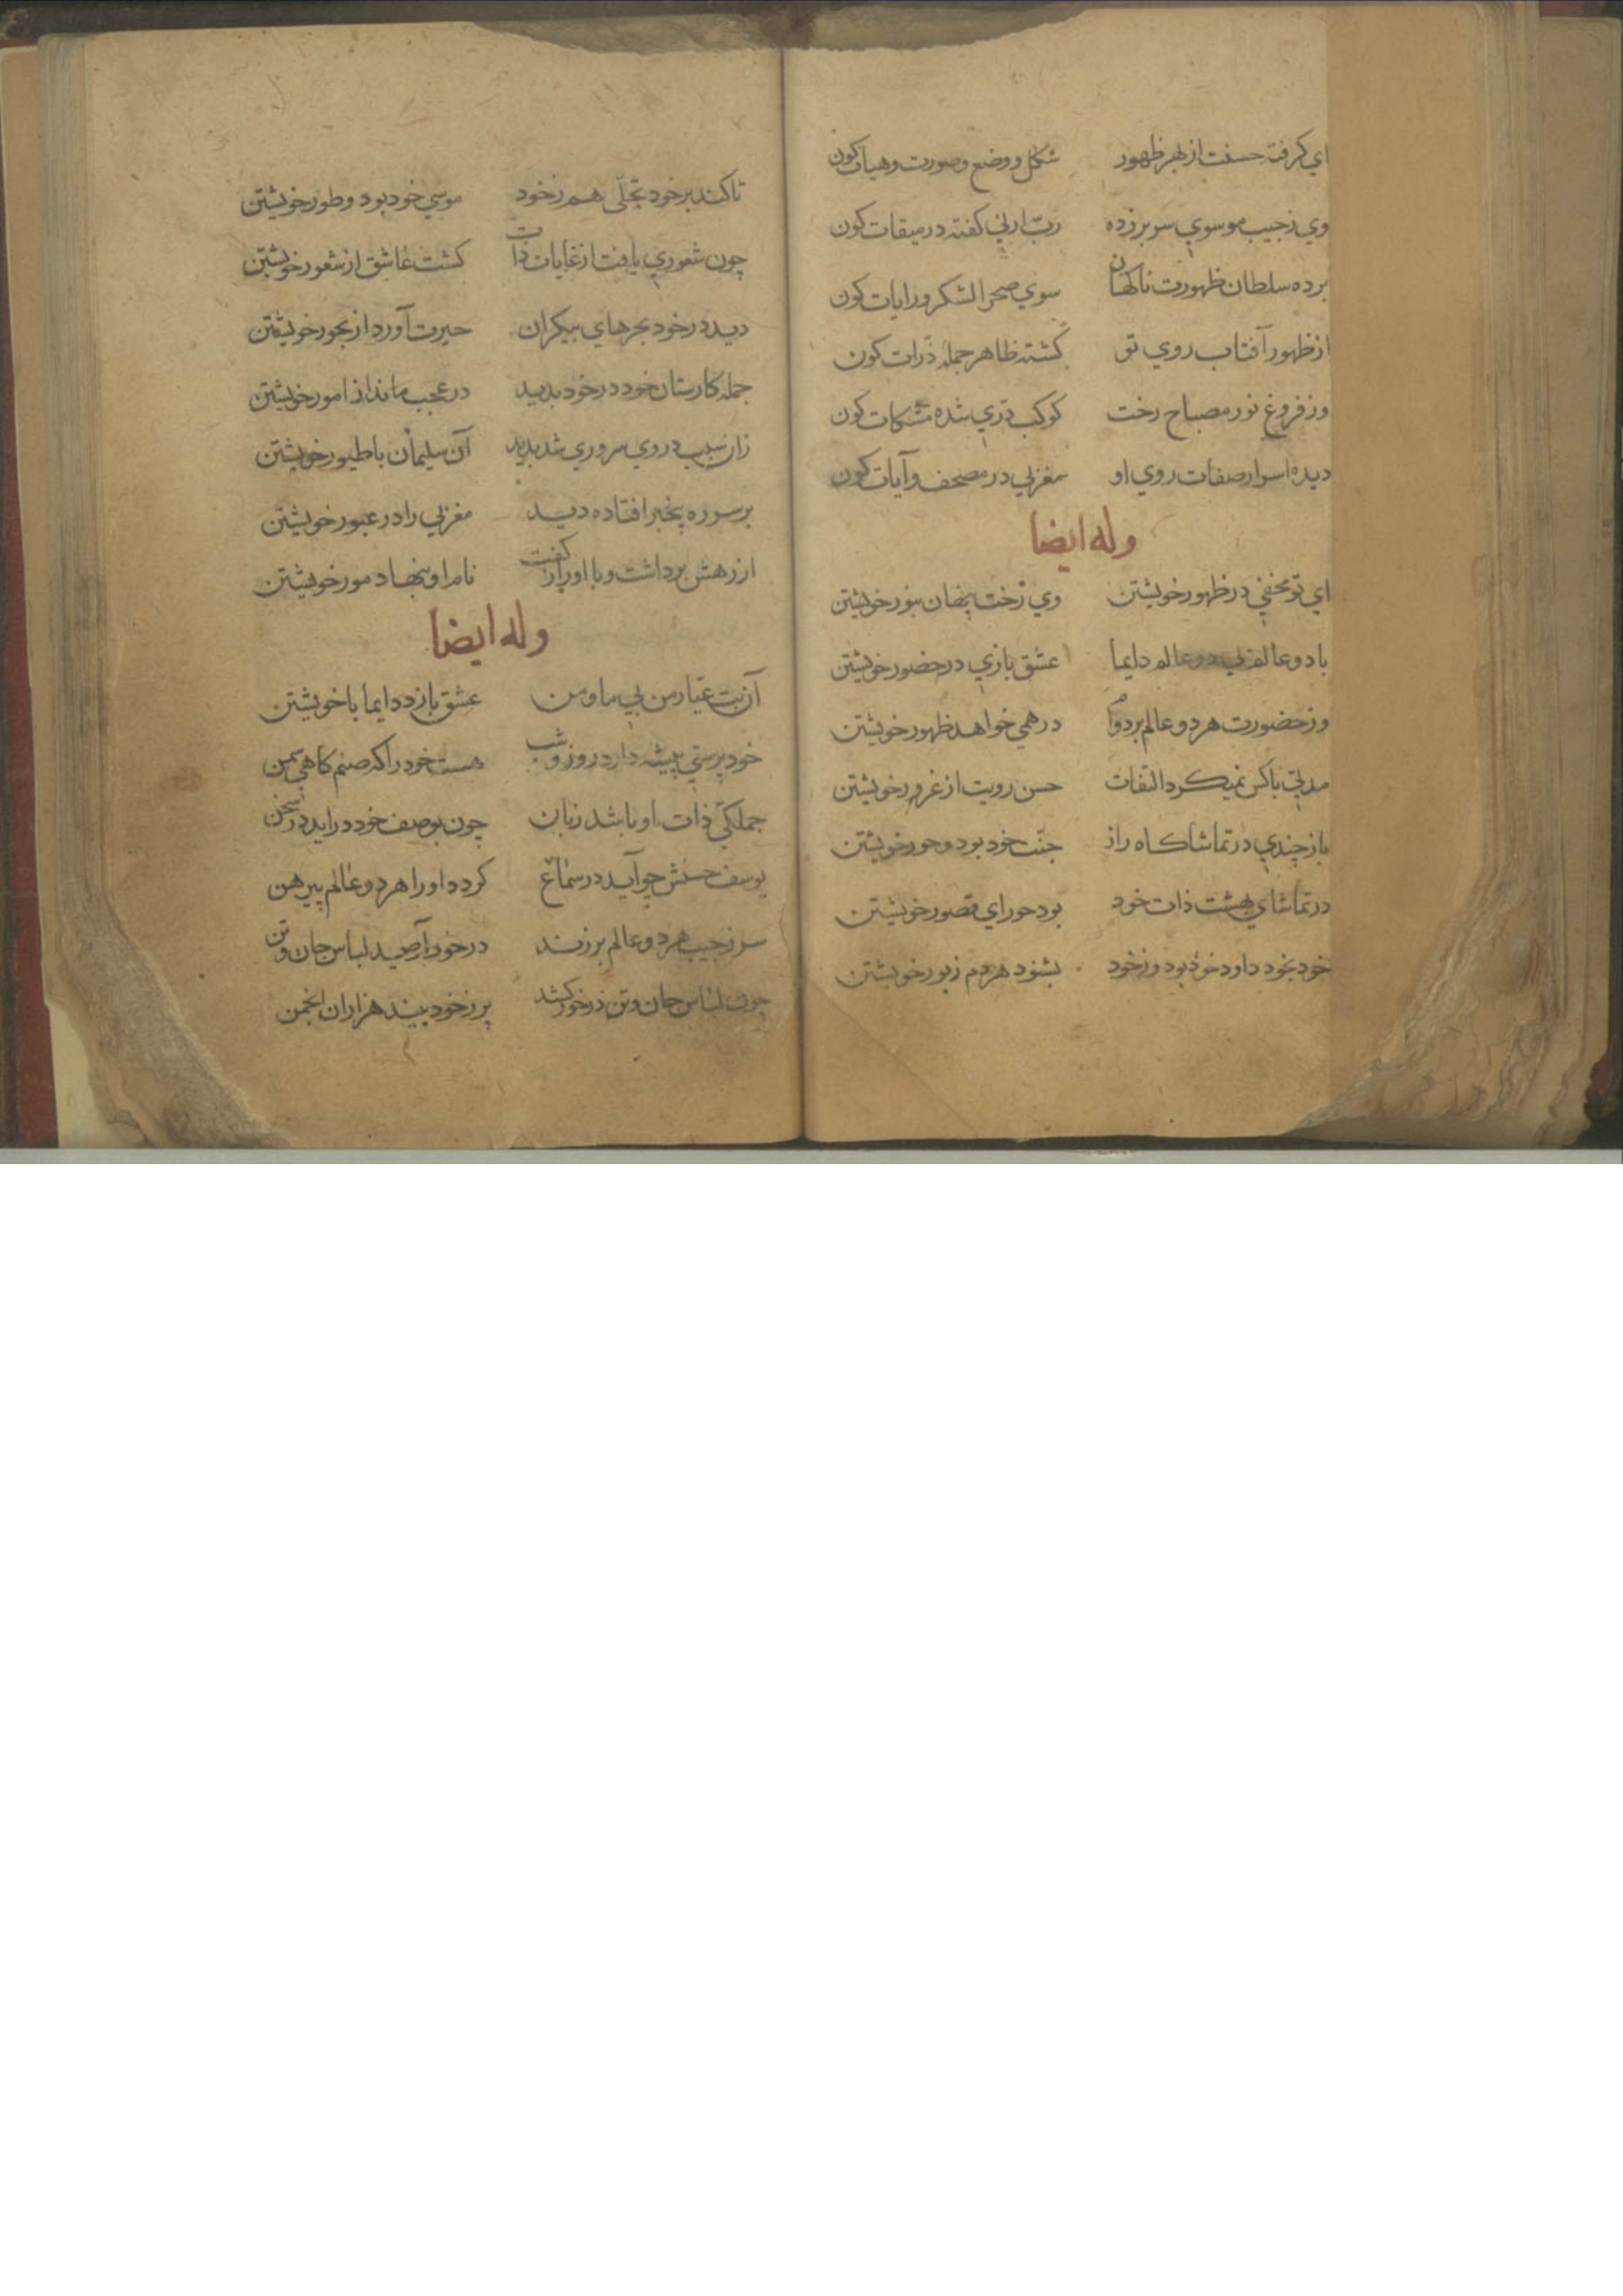 اي كرفته حسنت از بهر ظهور شكل و وضع و صورت و هيآت كون
وي زجيب موسوي سر برزده رب ارني كفته در ميقات كون
برده سلطان ظهورت ناكهان سوي صحرا لشكر و رايات كون
از ظهور آفتاب روي تو كشته ظاهر جمله ذرات كون
وز فروغ نور مصباح رخت كوكب دري شده مشكات كون
ديده اسرار صفات روي او مغربي در مصحف و آيات كون
وله ايضا
اي تو مخفي در ظهور خويشتن وي رخت پنهان بنور خويشتن
با دو عالم بي دو عالم دايما عشق بازي در حضور خويشتن
وز حضورت هر دو عالم بر دوام در همي خواهد ظهور خويشتن
مدتي باكس نميكرد التفات حسن رويت از غرور خويشتن
باز چندي در تماشاكاه راز جنت خود بود و حور خويشتن
در تماشاي بهشت ذات خود بود حوراي قصور خويشتن
خود بخود داود خود بود و زخود بشنود هر دم زبور خويشتن
تا كند بر خود تجلي هم زخود موسي خود بود و طور خويشتن
چون شعوري يافت از غايات ذات كشت عاشق از شعور خويشتن
ديد در خود بحرهاي بيكران حيرت آورد از بحور خويشتن
جمله كارستان خود در خود بديد در عجب ماند از امور خويشتن
زان سبب در وي سروري شد بديد آن سليمان با طيور خويشتن
بر سر ره بيخبر افتاده ديد مغربي را در عبور خويشتن
از رهش برداشت و با او راز كفت نام او بنهاد مور خويشتن
وله ايضا
آن بت عيار من بي ما و من عشق بازد دايما با خويشتن
خود پرستي پيشه دارد روز و شب هست خود را كه صنم كاهي شمن
جملكي ذات او باشد زبان چون بوصف خود درايد در سخن
يوسف حسنش چو آيد در سماع كردد او را هر دو عالم پيرهن
سر زجيب هر دو عالم بر زند در خود آرميد لباس جان و تن
چون لباس جان و تن در خود كشد پر زخود بيند هزاران انجمن